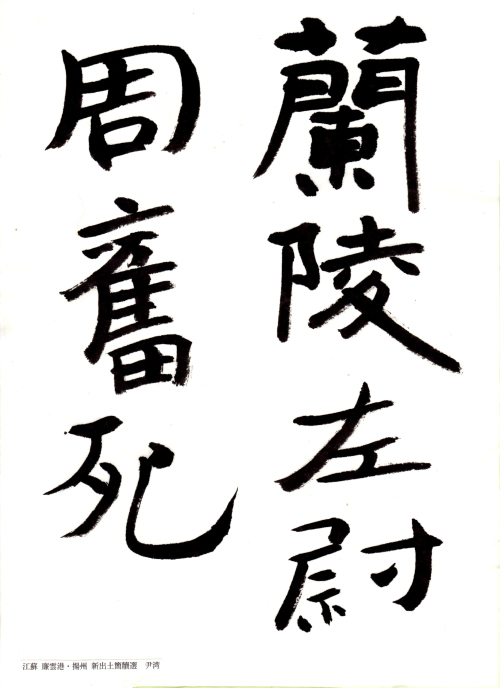 蘭陵左尉
周奮死
江蘇 廉雲港・揚州 新出土簡牘選 尹湾